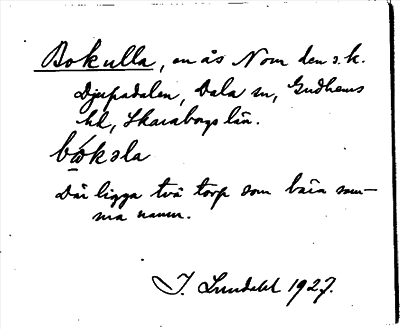 Bokulla, en ås Nom den s.k.
Djupadalen, Dala sn, Gudhems
hd, Skaraborgs län.
bókəla
Där ligga två torp som bära sam-
ma namn.
I. Lundahl 1927.